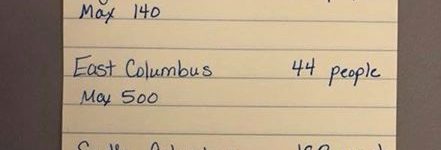 Max 140
East Columbus 44 people
Max 500